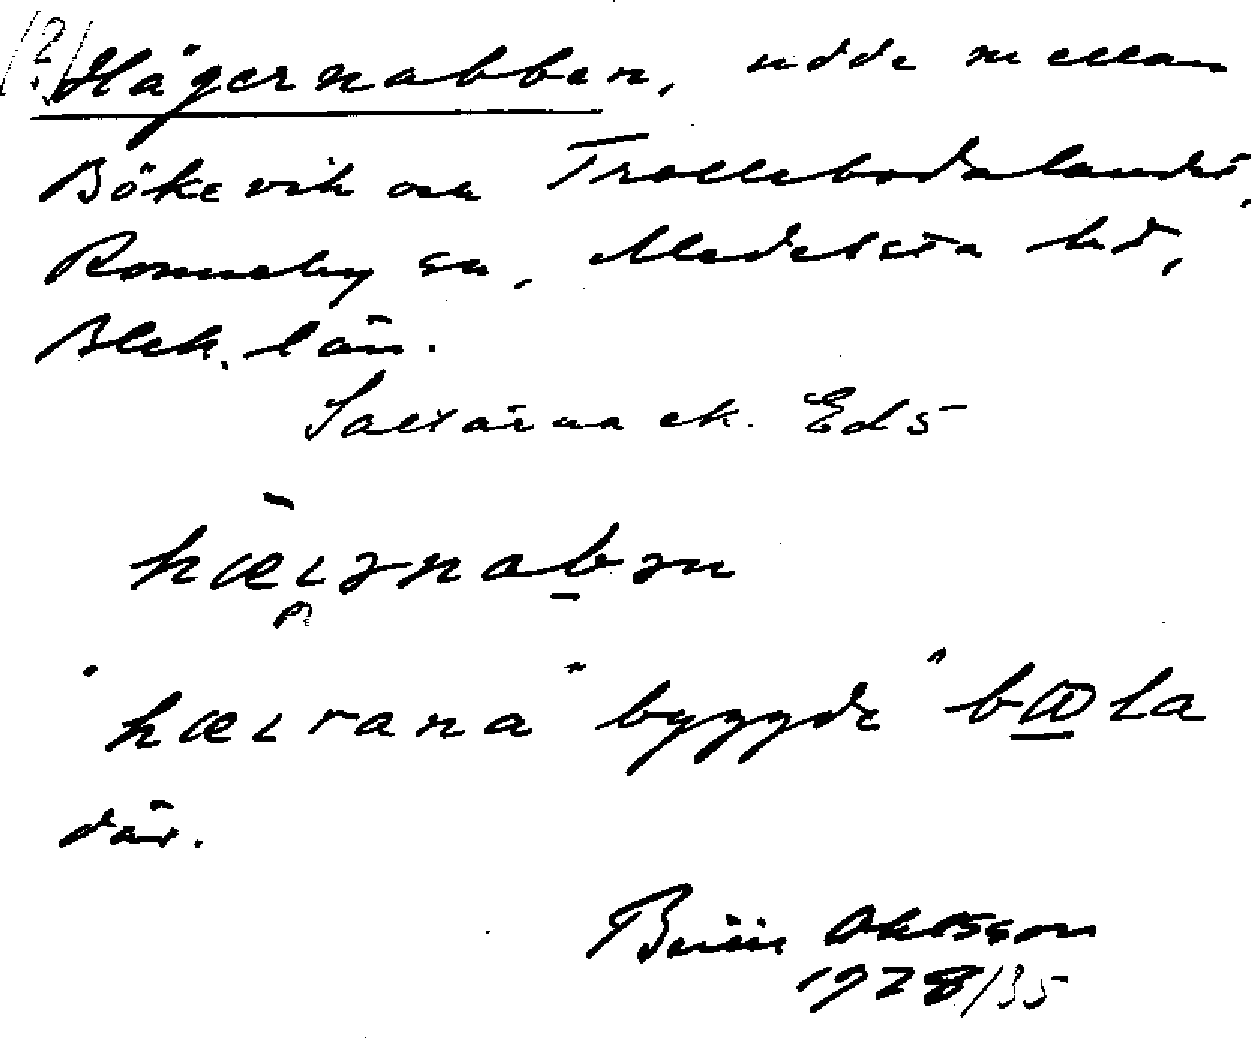 (?) Hägernabben, udde mellan
Bökevik och Trollebodalandet,
Ronneby sn, Medelsta hd,
Blek. län.
Saltärna ek. Ed 5
hæɩənabən
"hæɩrana" byggde bola
där.
Ohlsson
1928/35